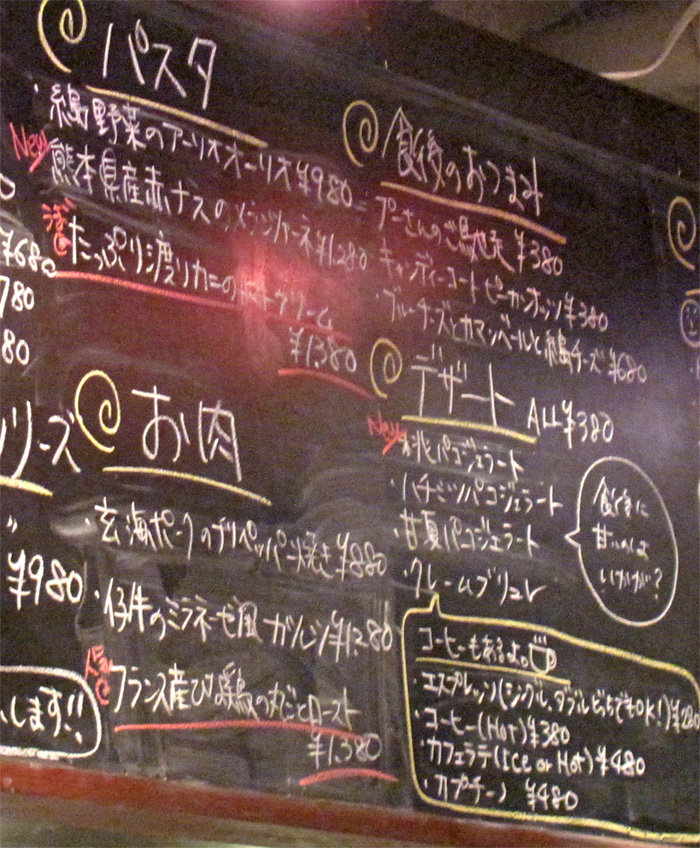 パスタ
・糸島野菜のアーリオオーリオ ¥980
New 熊本県産赤ナスのメランジャーネ ¥1,280
たっぷり渡りカニのトマトクリーム
¥1,380
お肉
・玄海ポークのチリペッパー焼き ¥880
・仔牛のミラネーゼ風カツレツ ¥1,280
人気 フランス産ひな鶏の丸ごとロースト
¥1,380
食後のおつまみ
・プーさんのご馳走 ¥380
・キャンディーコートピーカンナッツ ¥380
・ブルーチーズとカマンベールと糸島チーズ ¥680
デザート ALL ¥380
New 桃パコジェラート
・ハチミツパコジェラート
・甘夏パコジェラート
・クレームブリュレ
食後に
甘いものは
いかがか?
コーヒーもあるよ。
・エスプレッソ(シングル、ダブルどっちでもOK!) ¥280
・コーヒー(Hot) ¥380
・カフェラテ(Ice or Hot) ¥480
・カプチーノ ¥480
¥680
780
80
リーズ
〃
¥980
します!!